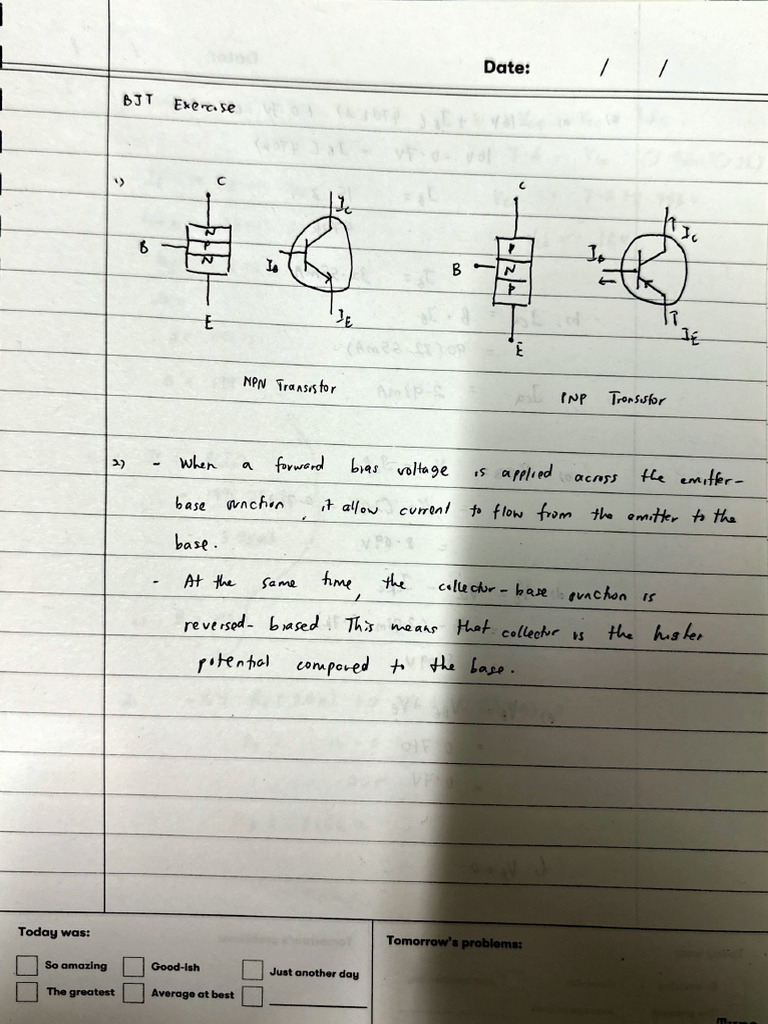 Date: / /
BJT Exercise
1)
C
N
P
N
B
E
IC
IB
IE
NPN Transistor
C
P
N
P
B
E
IC
IB
IE
PNP Transistor
2) - When a forward bias voltage is applied across the emitter-
base junction, it allow current to flow from the emitter to the
base.
- At the same time, the collector-base junction is
reversed-biased. This means that collector is the higher
potential compared to the base.
Today was:
So amazing
Good-ish
Just another day
The greatest
Average at best
Tomorrow's problems: